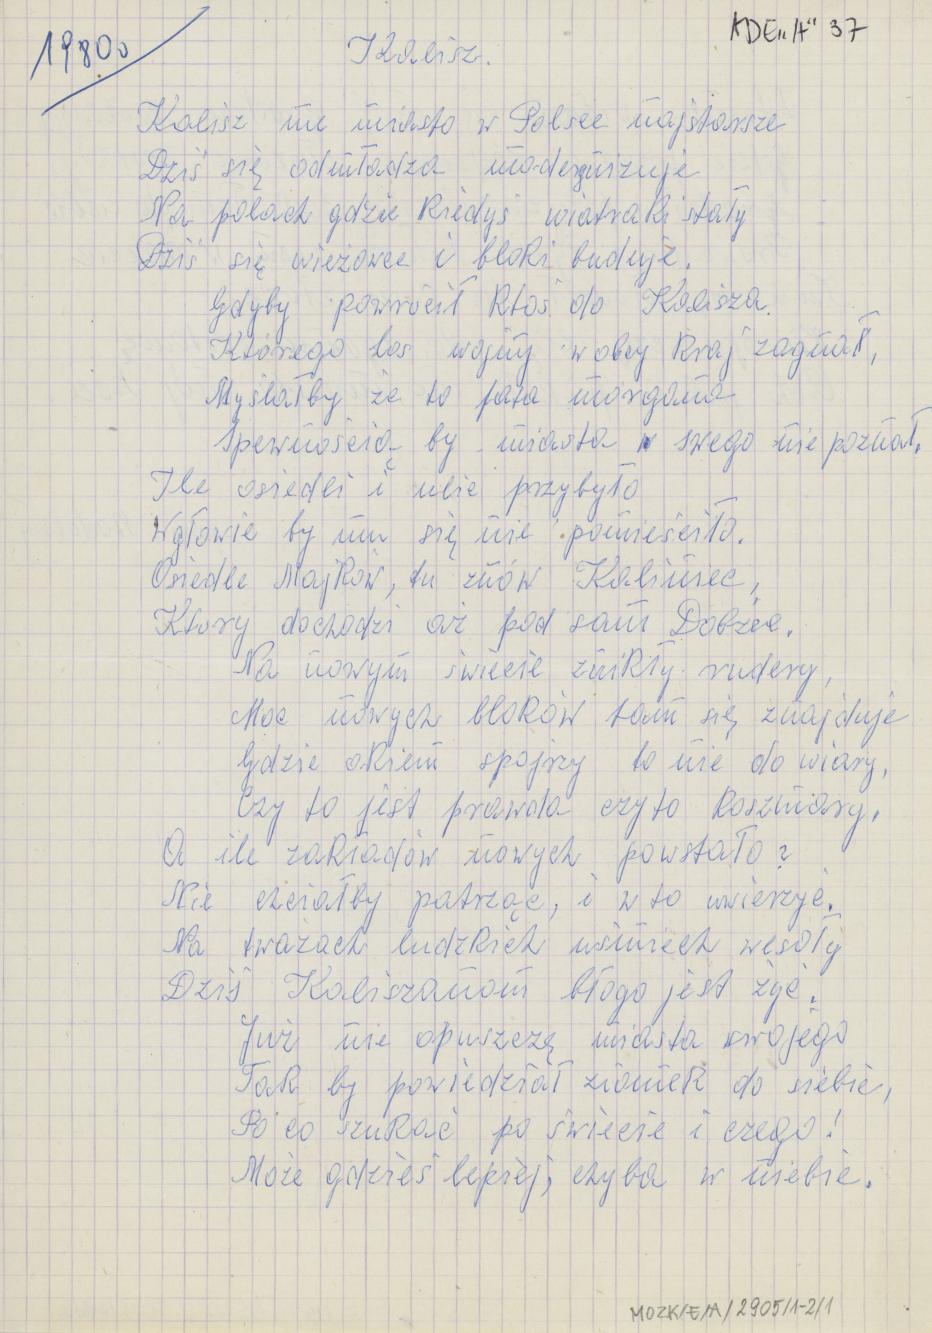 1980
KDE„A" 37
Kalisz.
Kalisz me miasto w Polsce najstarsze
Dziś się odmładza modernizuje
Na polach gdzie kiedyś wiatraki stały
Dziś się wieżowce i bloki buduje.
Gdyby powrócił ktoś do Kalisza.
Którego los wojny w obcy kraj zagnał,
Myślałby że to fata morgana
Spewnością by miasta swego nie poznał.
Ile osiedli i ulic przybyło
Wgłowie by mu się nie pomieściło.
Osiedle Majków, tu znów Kaliniec,
Ktory dochodzi aż pod sam Dobżec.
Na nowym świecie znikły rudery,
Moc nowych bloków tam się znajduje
Gdzie okiem spojrzy to nie do wiary,
Czy to jest prawda czy to koszmary.
A ile zakładów nowych powstało?
Nie chciałby patrząc, i w to uwierzyć.
Na tważach ludzkich uśmiech wesoły
Dziś Kaliszanom błogo jest żyć.
Już nie opuszczę miasta swojego
Tak by powiedział ziomek do siebie,
Po co szukać po świecie i czego!
Może gdzieś lepiej, chyba w niebie.
MOZK/E/A/2905/1-2/1